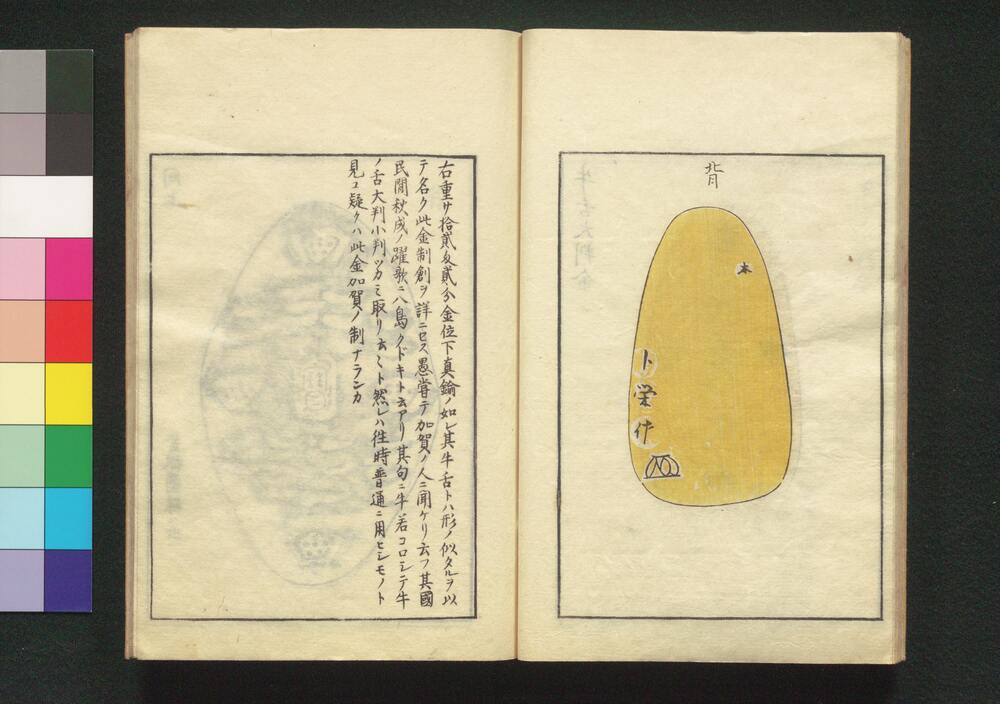 背
本
ト
栄
作
右重サ拾貳匁貳分金位下真鍮ノ如シ其牛舌トハ形ノ似タルヲ以
テ名ク此金制創ヲ詳ニセス愚嘗テ加賀ノ人ニ聞ケリ云フ其國
民間秋成ノ躍歌ニ八島クドキト云アリ其句ニ牛若コロシテ牛
ノ舌大判小判ツカミ取リ云々ト然レハ徃時普通ニ用ヒシモノト
見ユ疑クハ此金加賀ノ制ナランカ